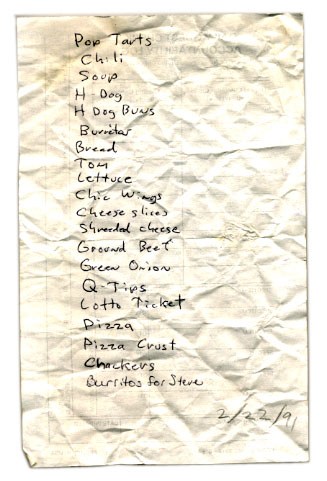 Pop Tarts
Chili
Soup
H Dog
H Dog Buns
Burritos
Bread
Tom
Lettuce
Chic Wings
Cheese slices
Shredded cheese
Ground Beef
Green Onion
Q-Tips
Lotto Ticket
Pizza
Pizza Crust
Chackers
Burritos for Steve
2/22/91